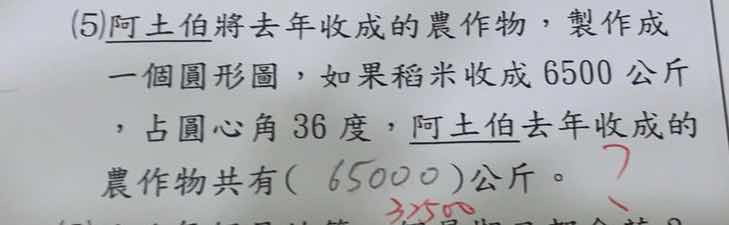 (5)阿土伯將去年收成的農作物，製作成
一個圓形圖，如果稻米收成 6500 公斤
，占圓心角 36 度，阿土伯去年收成的
農作物共有( 65000 )公斤。 ?
32500